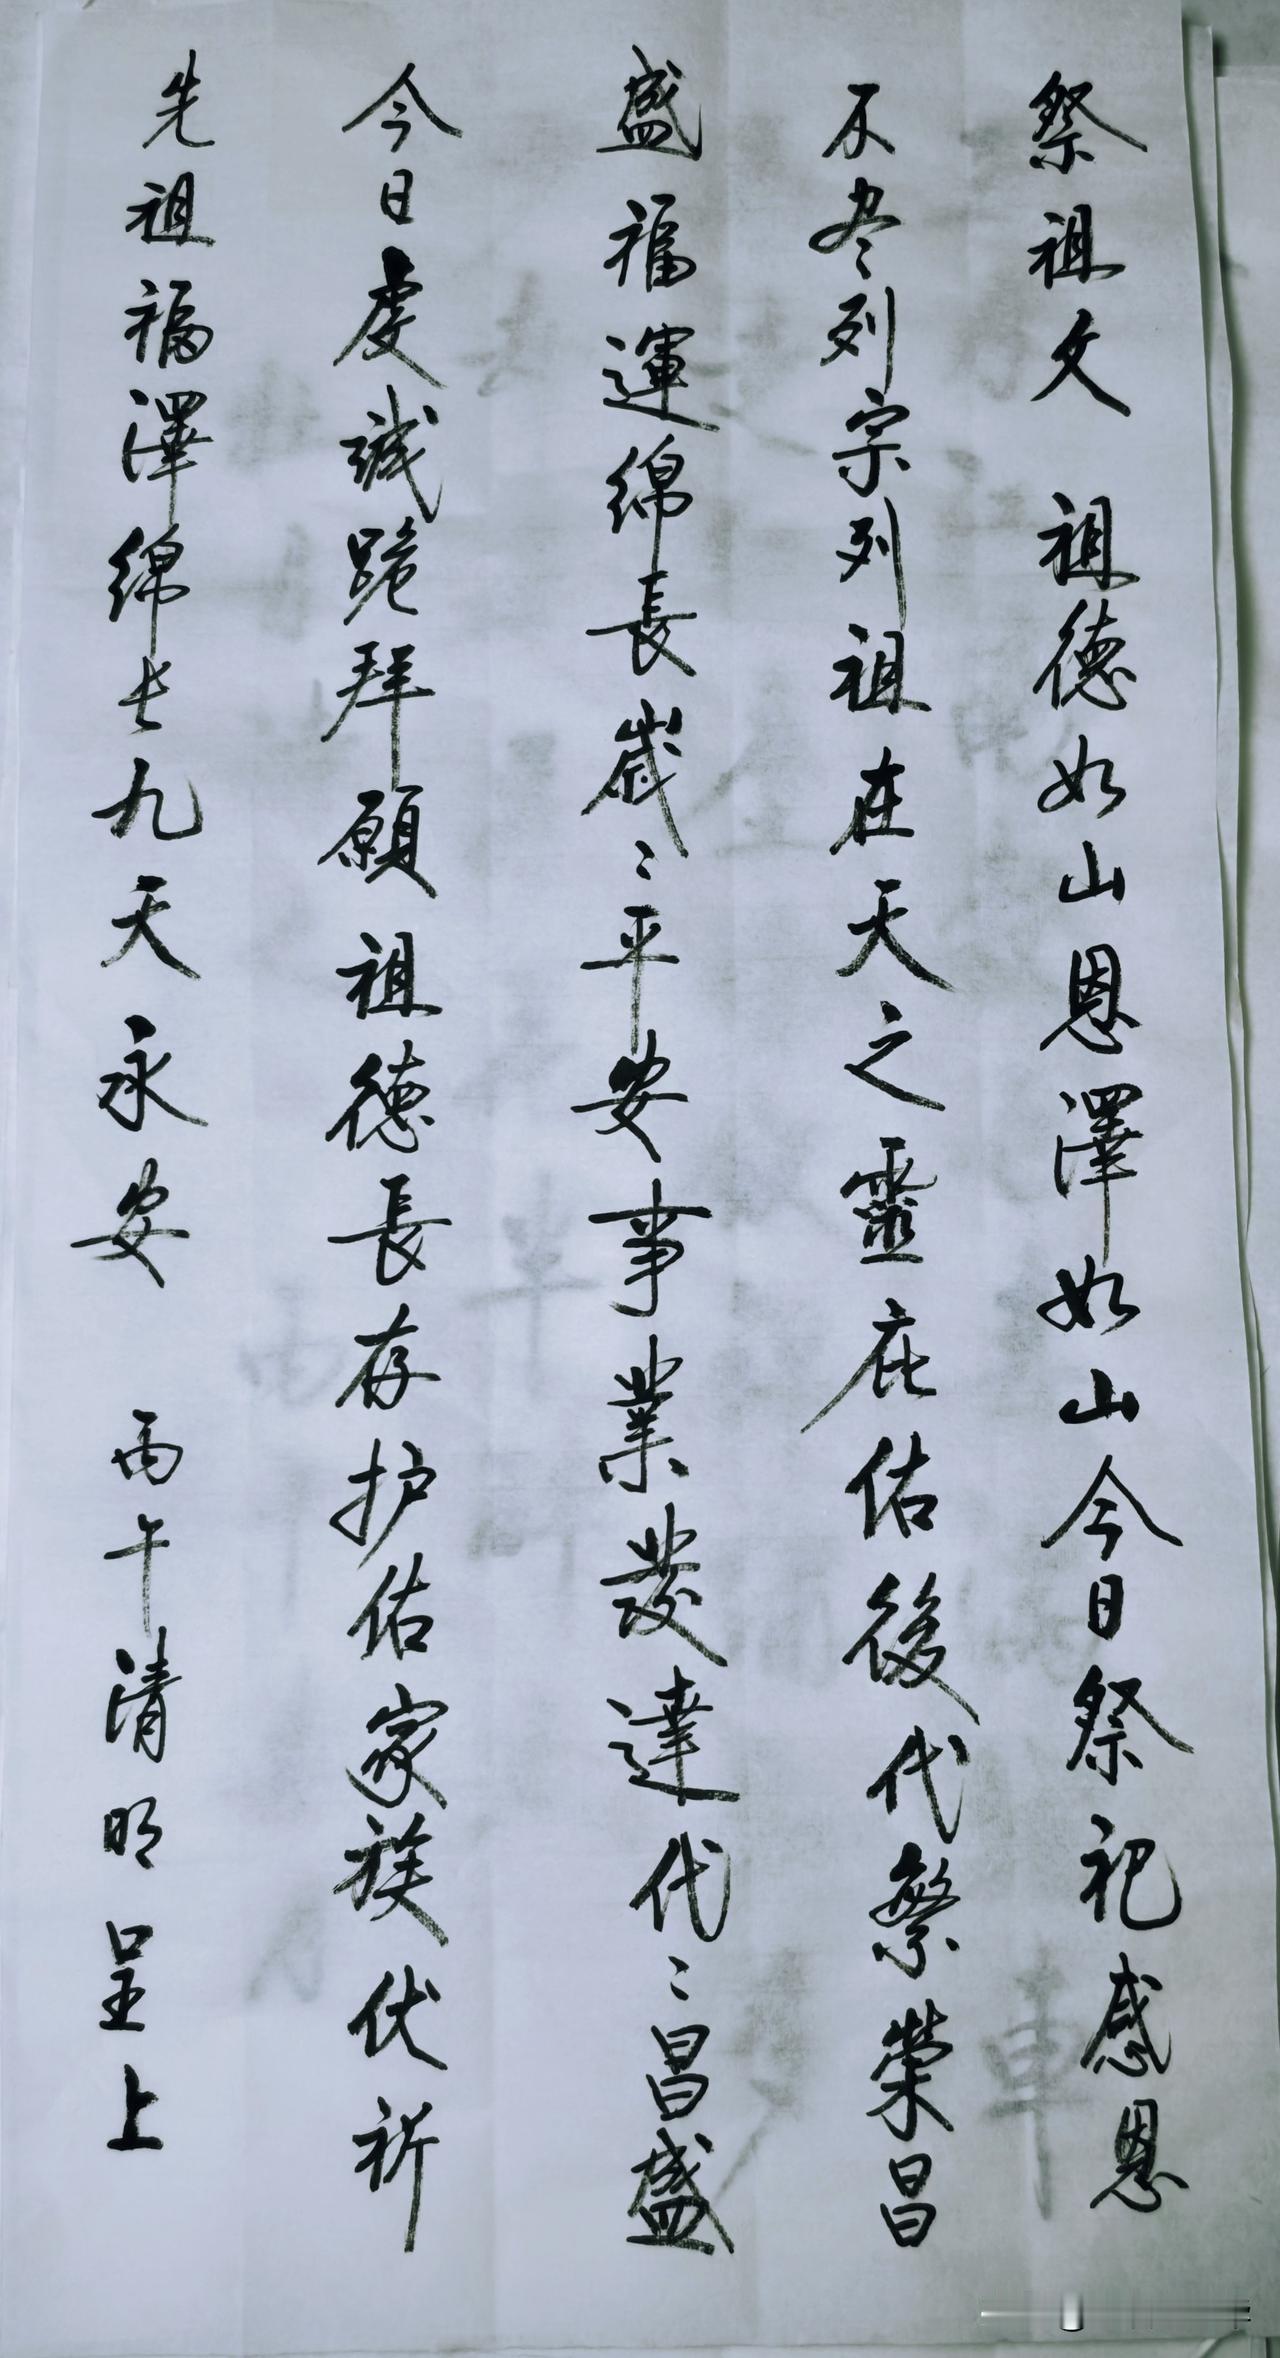 祭祖文 祖德如山恩澤如山今日祭祀感恩
不尽列宗列祖在天之靈庇佑後代繁荣昌
盛福運綿長歲〻平安事業發達代〻昌盛
今日虔誠跪拜願祖德長存护佑家族伏祈
先祖福澤綿长九天永安 丙午清明呈上